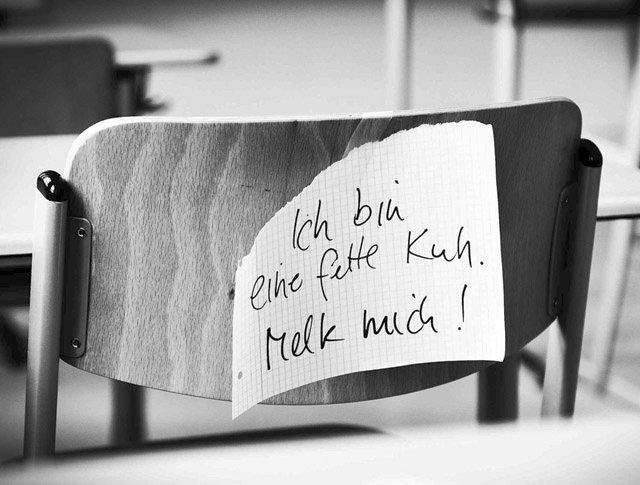 Ich bin
eine fette Kuh.
Melk mich!